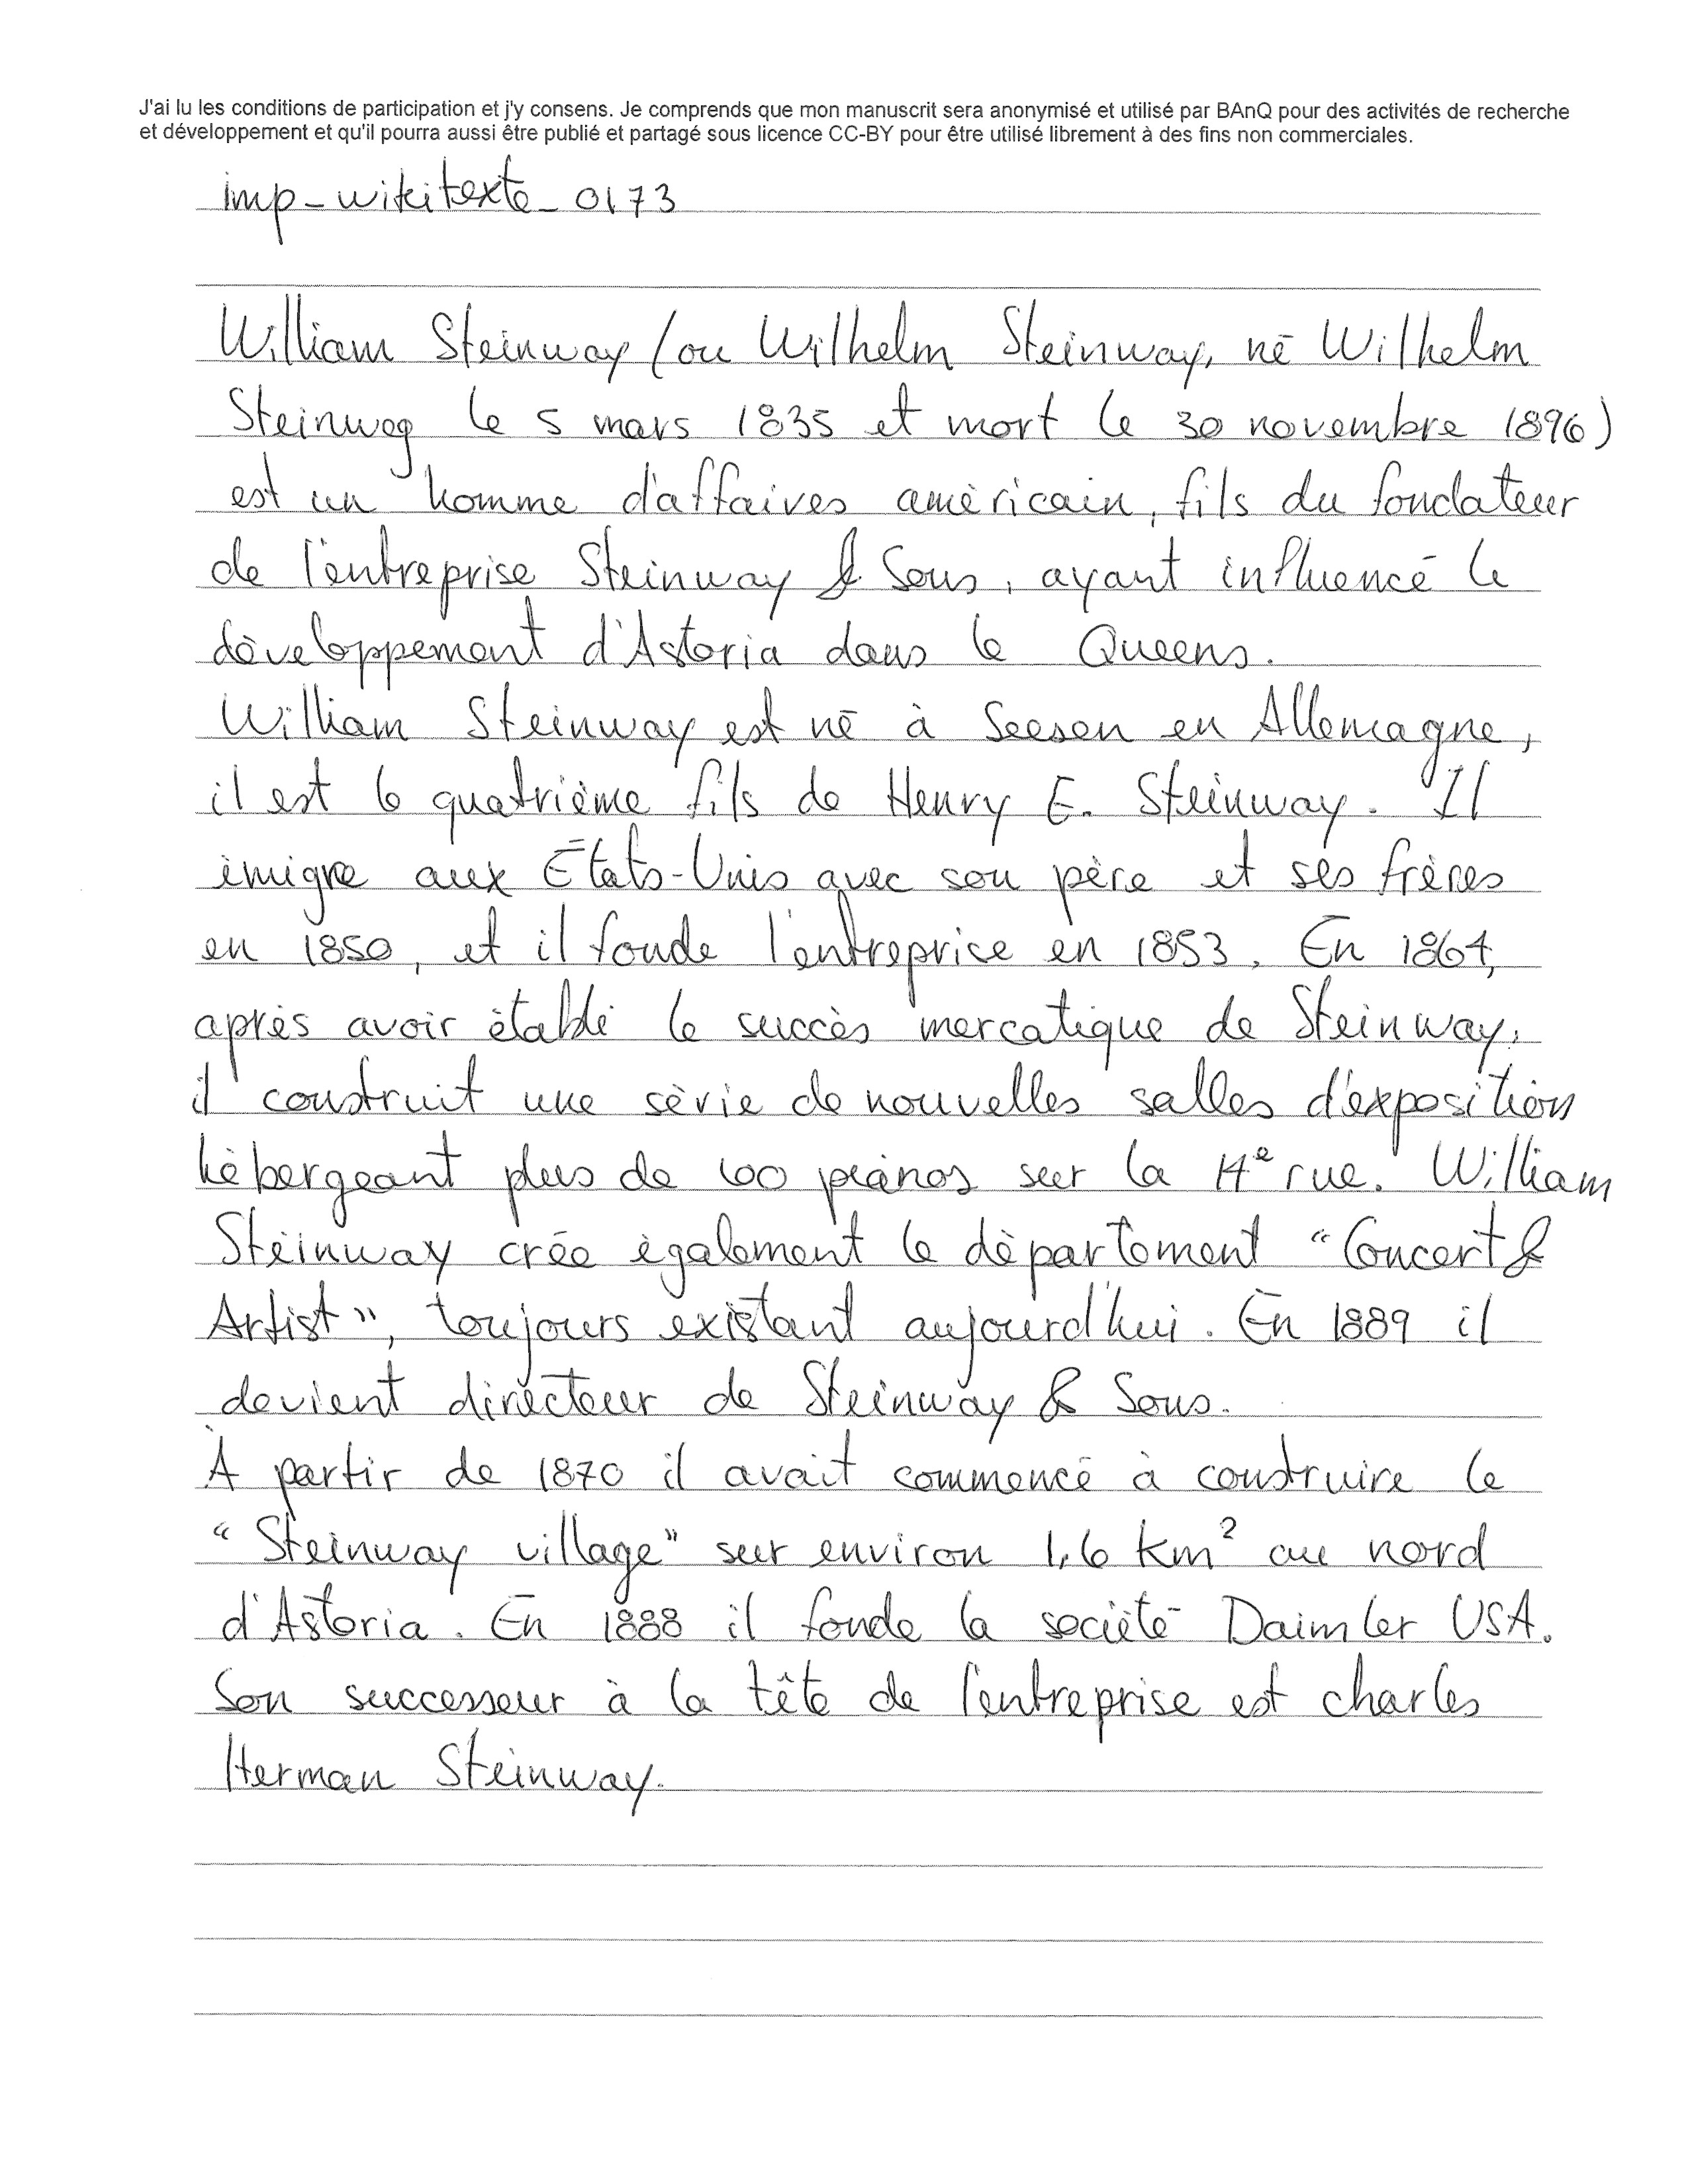 J'ai lu les conditions de participation et j'y consens. Je comprends que mon manuscrit sera anonymisé et utilisé par BAnQ pour des activités de recherche
et développement et qu'il pourra aussi être publié et partagé sous licence CC-BY pour être utilisé librement à des fins non commerciales.
imp_wikitexte_0173
William Steinway (ou Wilhelm Steinway, né Wilhelm
Steinweg le 5 mars 1835 et mort le 30 novembre 1896)
est un homme d'affaires américain, fils du fondateur
de l'entreprise Steinway & Sons, ayant influencé le
développement d'Astoria dans le Queens.
William Steinway est né à Seesen en Allemagne,
il est le quatrième fils de Henry E. Steinway. Il
émigre aux États-Unis avec son père et ses frères
en 1850, et il fonde l'entreprise en 1853. En 1864,
après avoir établi le succès mercatique de Steinway,
il construit une série de nouvelles salles d'exposition
hébergeant plus de 100 pianos sur la 14e rue. William
Steinway crée également le département "Concert &
Artist", toujours existant aujourd'hui. En 1889 il
devient directeur de Steinway & Sons.
À partir de 1870 il avait commencé à construire le
"Steinway village" sur environ 1,6 km² au nord
d'Astoria. En 1888 il fonde la société Daimler USA.
Son successeur à la tête de l'entreprise est charles
Herman Steinway.